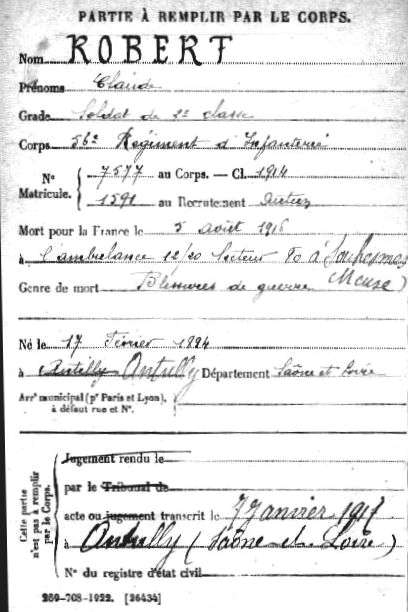 PARTIE À REMPLIR PAR LE CORPS.
Nom ROBERT
Prénoms Claude
Grade Soldat de 2e classe
Corps 56e Régiment d'Infanterie
N° Matricule. { 7577 au Corps. — Cl. 1914
1591 au Recrutement Autun
Mort pour la France le 5 août 1916
à l'ambulance 12/20 Secteur 80 à Souhesmes
Genre de mort Blessures de guerre (Meuse)
Né le 17 Février 1894
à Antilly Antully Département Saône et Loire
Arrt municipal (pr Paris et Lyon),
à défaut rue et N°.
Cette partie n'est pas à remplir par le Corps.
Jugement rendu le
par le Tribunal de
acte ou jugement transcrit le 7 Janvier 1917
à Antully (Saône-et-Loire)
N° du registre d'état civil
269-708-1922. [26434]